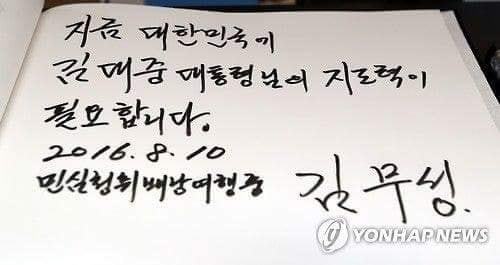 지금 대한민국에
김대중 대통령님의 지도력이
필요합니다.
2016. 8. 10
민심청취 배낭여행중
김무성.
YONHAP NEWS